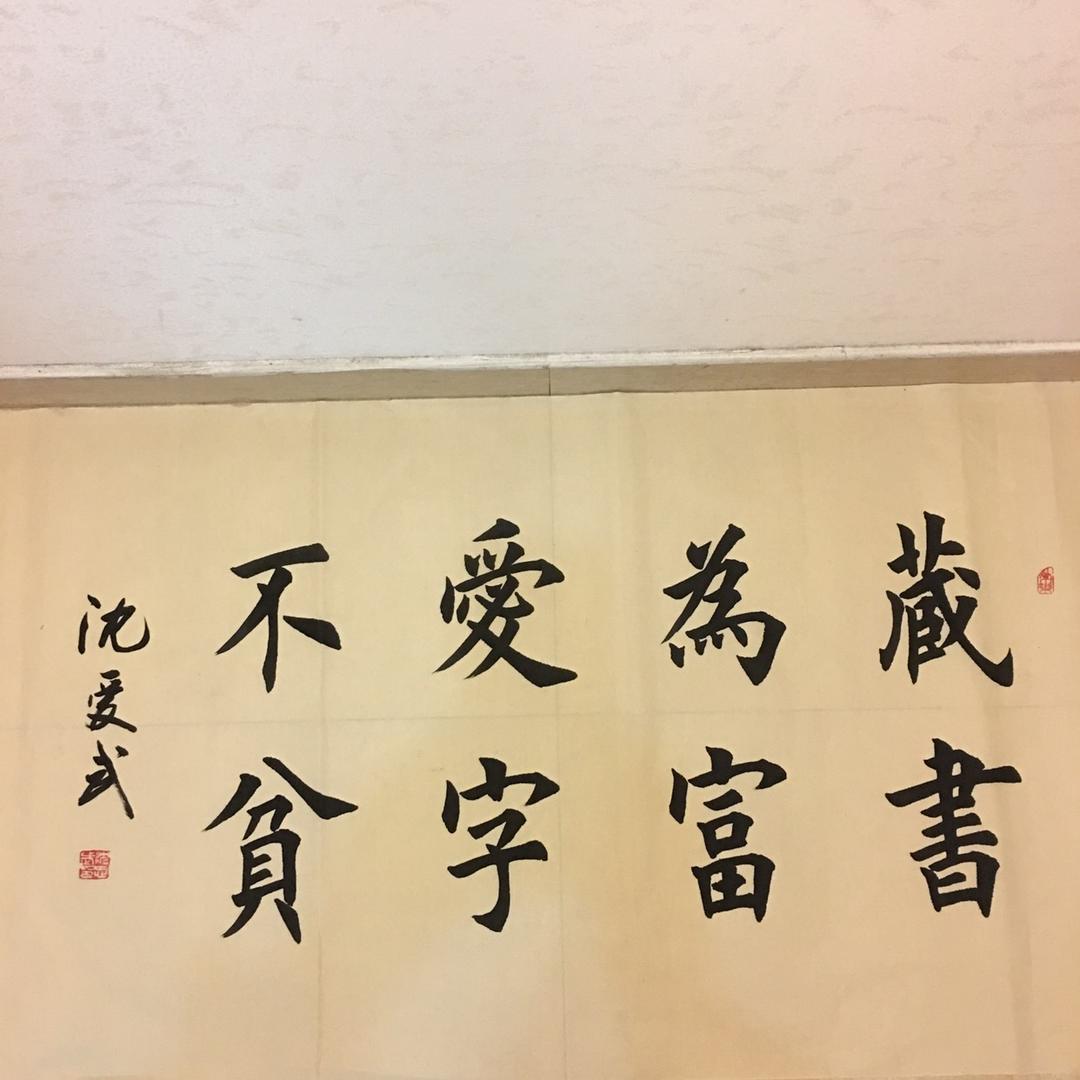 藏書
為富
愛字
不貧
沈愛武